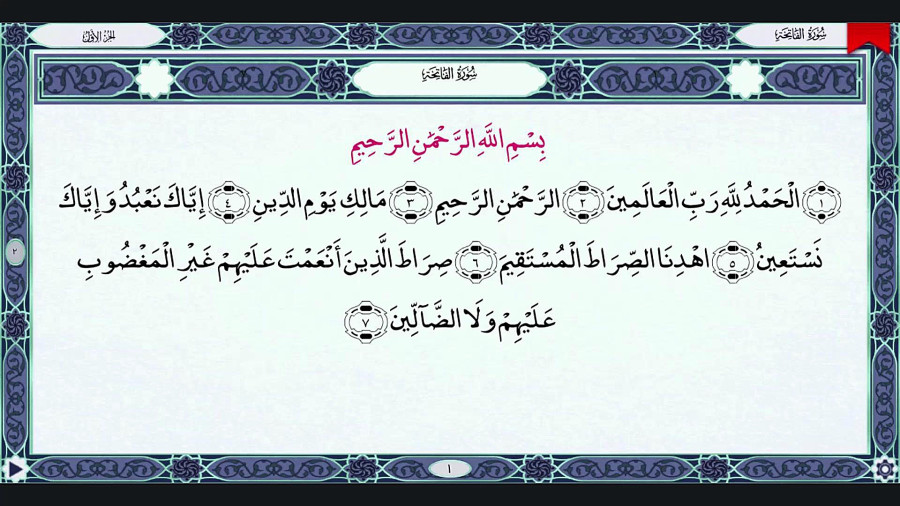 سُورَةُ الفَاتِحَةِ
الجزء الأول
سُورَةُ الفَاتِحَةِ
بِسْمِ اللَّهِ الرَّحْمَٰنِ الرَّحِيمِ
١ الْحَمْدُ لِلَّهِ رَبِّ الْعَالَمِينَ ٢ الرَّحْمَٰنِ الرَّحِيمِ ٣ مَالِكِ يَوْمِ الدِّينِ ٤ إِيَّاكَ نَعْبُدُ وَإِيَّاكَ
نَسْتَعِينُ ٥ اهْدِنَا الصِّرَاطَ الْمُسْتَقِيمَ ٦ صِرَاطَ الَّذِينَ أَنْعَمْتَ عَلَيْهِمْ غَيْرِ الْمَغْضُوبِ
عَلَيْهِمْ وَلَا الضَّآلِّينَ ٧
٢
١